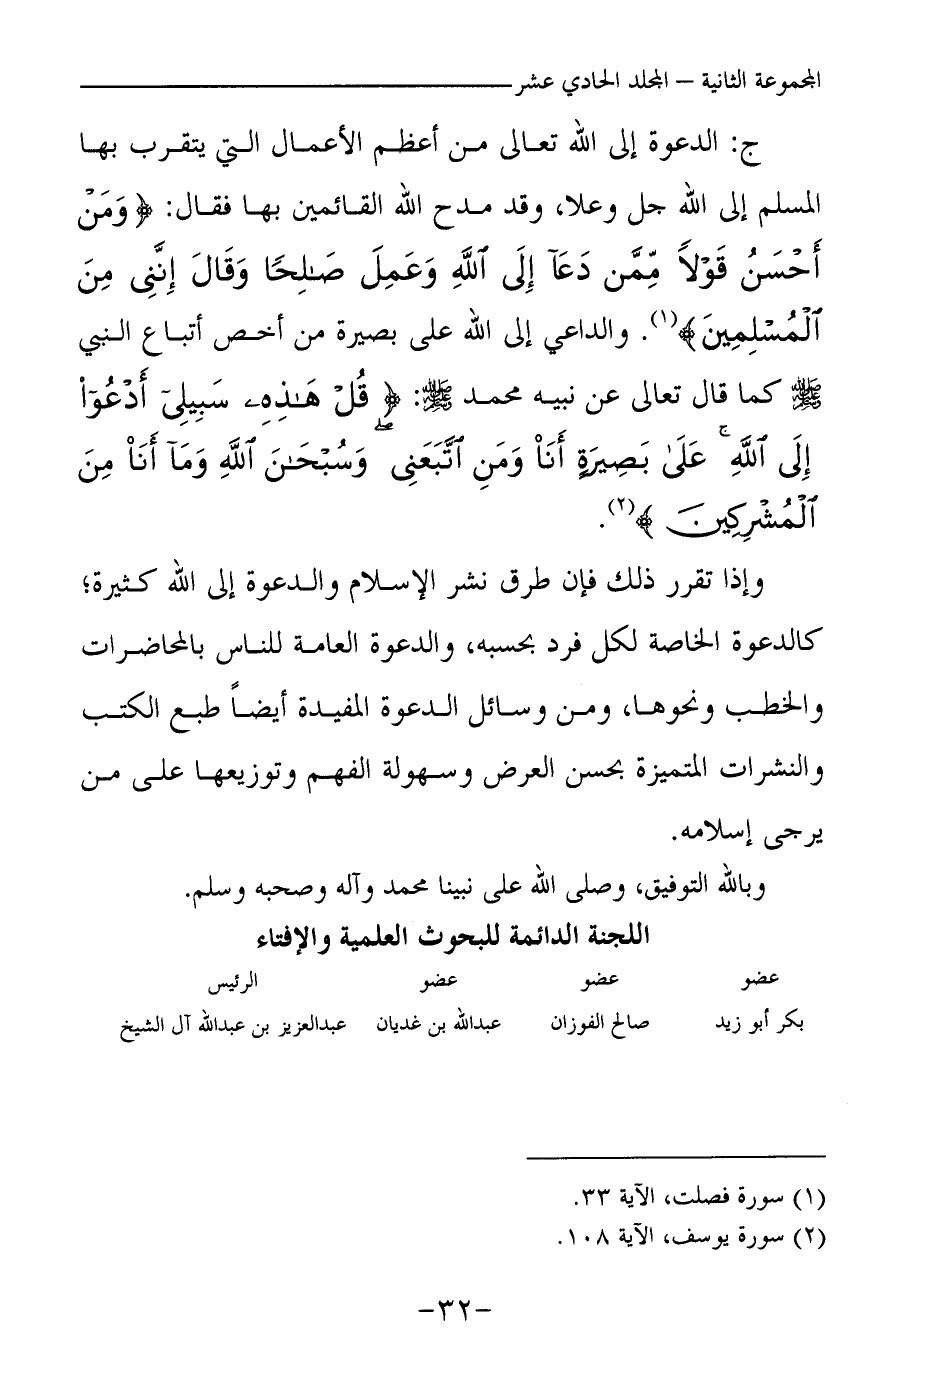 المجموعة الثانية – المجلد الحادي عشر
ج: الدعوة إلى الله تعالى من أعظم الأعمال التي يتقرب بها
المسلم إلى الله جل وعلا، وقد مدح الله القائمين بها فقال: ﴿ وَمَنْ
أَحْسَنُ قَوْلًا مِّمَّن دَعَآ إِلَى ٱللَّهِ وَعَمِلَ صَـٰلِحًا وَقَالَ إِنَّنِى مِنَ
ٱلْمُسْلِمِينَ ﴾(١). والداعي إلى الله على بصيرة من أخص أتباع النبي
ﷺ كما قال تعالى عن نبيه محمد ﷺ: ﴿ قُلْ هَـٰذِهِۦ سَبِيلِىٓ أَدْعُوٓا۟
إِلَى ٱللَّهِ ۚ عَلَىٰ بَصِيرَةٍ أَنَا۠ وَمَنِ ٱتَّبَعَنِى ۖ وَسُبْحَـٰنَ ٱللَّهِ وَمَآ أَنَا۠ مِنَ
ٱلْمُشْرِكِينَ ﴾(٢).
وإذا تقرر ذلك فإن طرق نشر الإسلام والدعوة إلى الله كثيرة؛
كالدعوة الخاصة لكل فرد بحسبه، والدعوة العامة للناس بالمحاضرات
والخطب ونحوها، ومن وسائل الدعوة المفيدة أيضاً طبع الكتب
والنشرات المتميزة بحسن العرض وسهولة الفهم وتوزيعها على من
يرجى إسلامه.
وبالله التوفيق، وصلى الله على نبينا محمد وآله وصحبه وسلم.
اللجنة الدائمة للبحوث العلمية والإفتاء
عضو عضو عضو الرئيس
بكر أبو زيد صالح الفوزان عبدالله بن غديان عبدالعزيز بن عبدالله آل الشيخ
(١) سورة فصلت، الآية ٣٣.
(٢) سورة يوسف، الآية ١٠٨.
-٣٢-